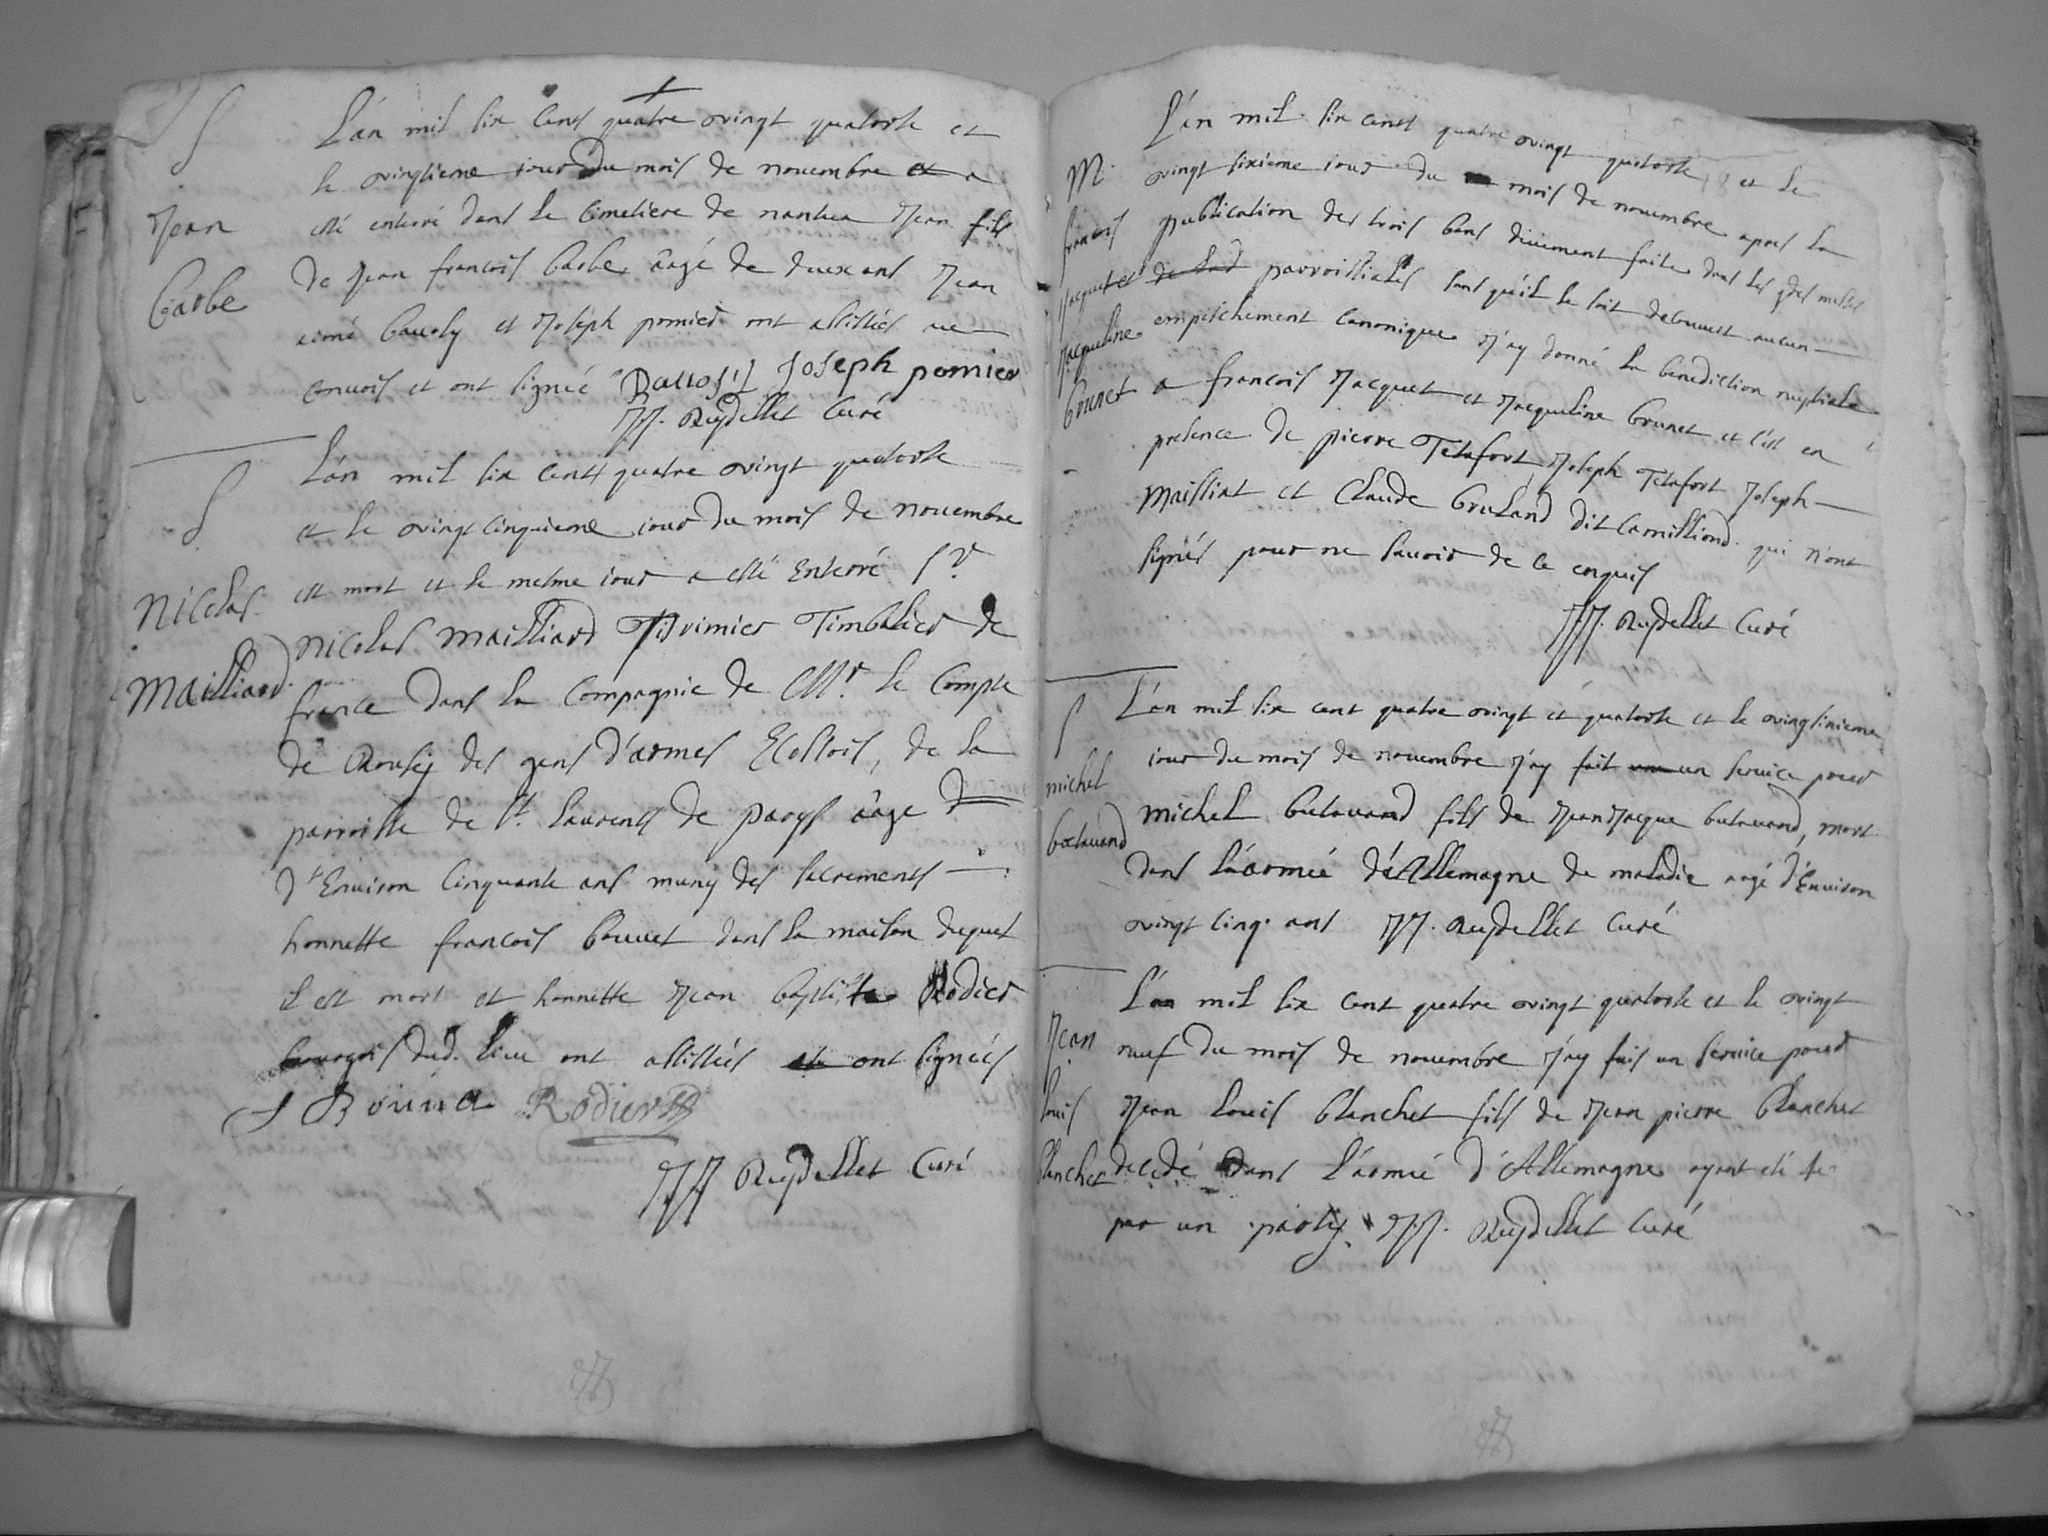 S
Jean
Barbe
L'an mil six cens quatre vingt quatorse et
le vingtieme jour du mois de novembre a
esté enterré dans le cimetiere de nantua Jean fils
de Jean francois barbe aagé de deux ans Jean
aimé et Joseph pomier ont assistés au
convois et ont signée Joseph pomier
JJ. Ruydellet Curé
S
Nicolas
Mailliard
L'an mil six cents quatre vingt quatorse
et le vingt cinquieme jour du mois de novembre
est mort et le mesme jour a esté Enterré Sr.
nicolas mailliard Timbalier de
france dans la Compagnie de Mr. le Compte
de des gens d'armes Ecossois, de la
parroisse de St. laurents de parys aage
d'Environ Cinquante ans muny des sacrements
honnette francois bouvet dans la maison duquel
il est mort et honnette Jean baptiste Rodier
bourgois dud. lieu ont assistés ont signéés
Rodier
JJ Ruydellet Curé
M.
francois
Jacquet et
Jacqueline
brunet
L'an mil six cents quatre vingt quatorse et le
vingt sixieme jour du mois de novembre apres la
publication des trois bans düement faite dans les messes
parroissiales sans qu'il se soit decouvert aucun
empeschement canonique J'ay donné la benediction nuptiale
a francois Jacquet et Jacqueline brunet et c'est en
presence de pierre Tetafort Joseph Tetafort Joseph
Maissiat et Claude dit Camilliond qui n'ont
signés pour ne savoir de ce enquis
JJ. Ruydellet Curé
S
michel
butavand
L'an mil six cent quatre vingt et quatorse et le vingtsixieme
jour du mois de novembre J'ay fait un service pour
michel butavand fils de Jean Jacque butavand, mort
dans l'armée d'Allemagne de maladie aagé d'Environ
vingt cinq ans JJ. Ruydellet Curé
Jean
louis
blanchet
L'an mil six cent quatre vingt quatorse et le vingt
neuf du mois de novembre J'ay fais un service pour
Jean louis blanchet fils de Jean pierre blanchet
decedé dans l'armée d'Allemagne ayant été
par un party JJ. Ruydellet Curé